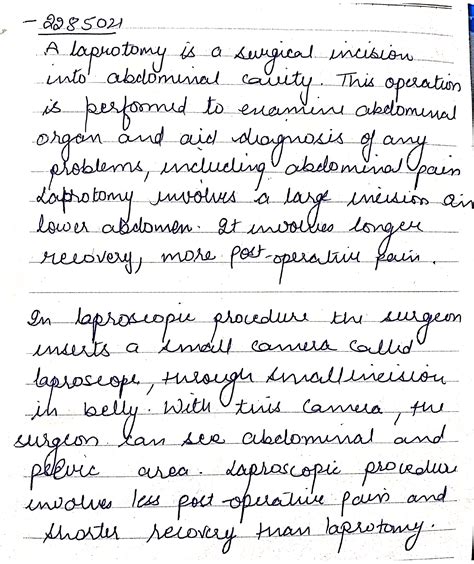 - 228504
A laprotomy is a surgical incision
into abdominal cavity. This operation
is performed to examine abdominal
organ and aid diagnosis of any
problems, including abdominal pain
Laprotomy involves a large incision in
lower abdomen. It involves longer
recovery, more post-operative pain.
In laproscopic procedure the surgeon
inserts a small camera called
laproscope, through small incision
in belly. With this camera, the
surgeon can see abdominal and
pelvic area. Laproscopic procedure
involves less post-operative pain and
shorter recovery than laprotomy.